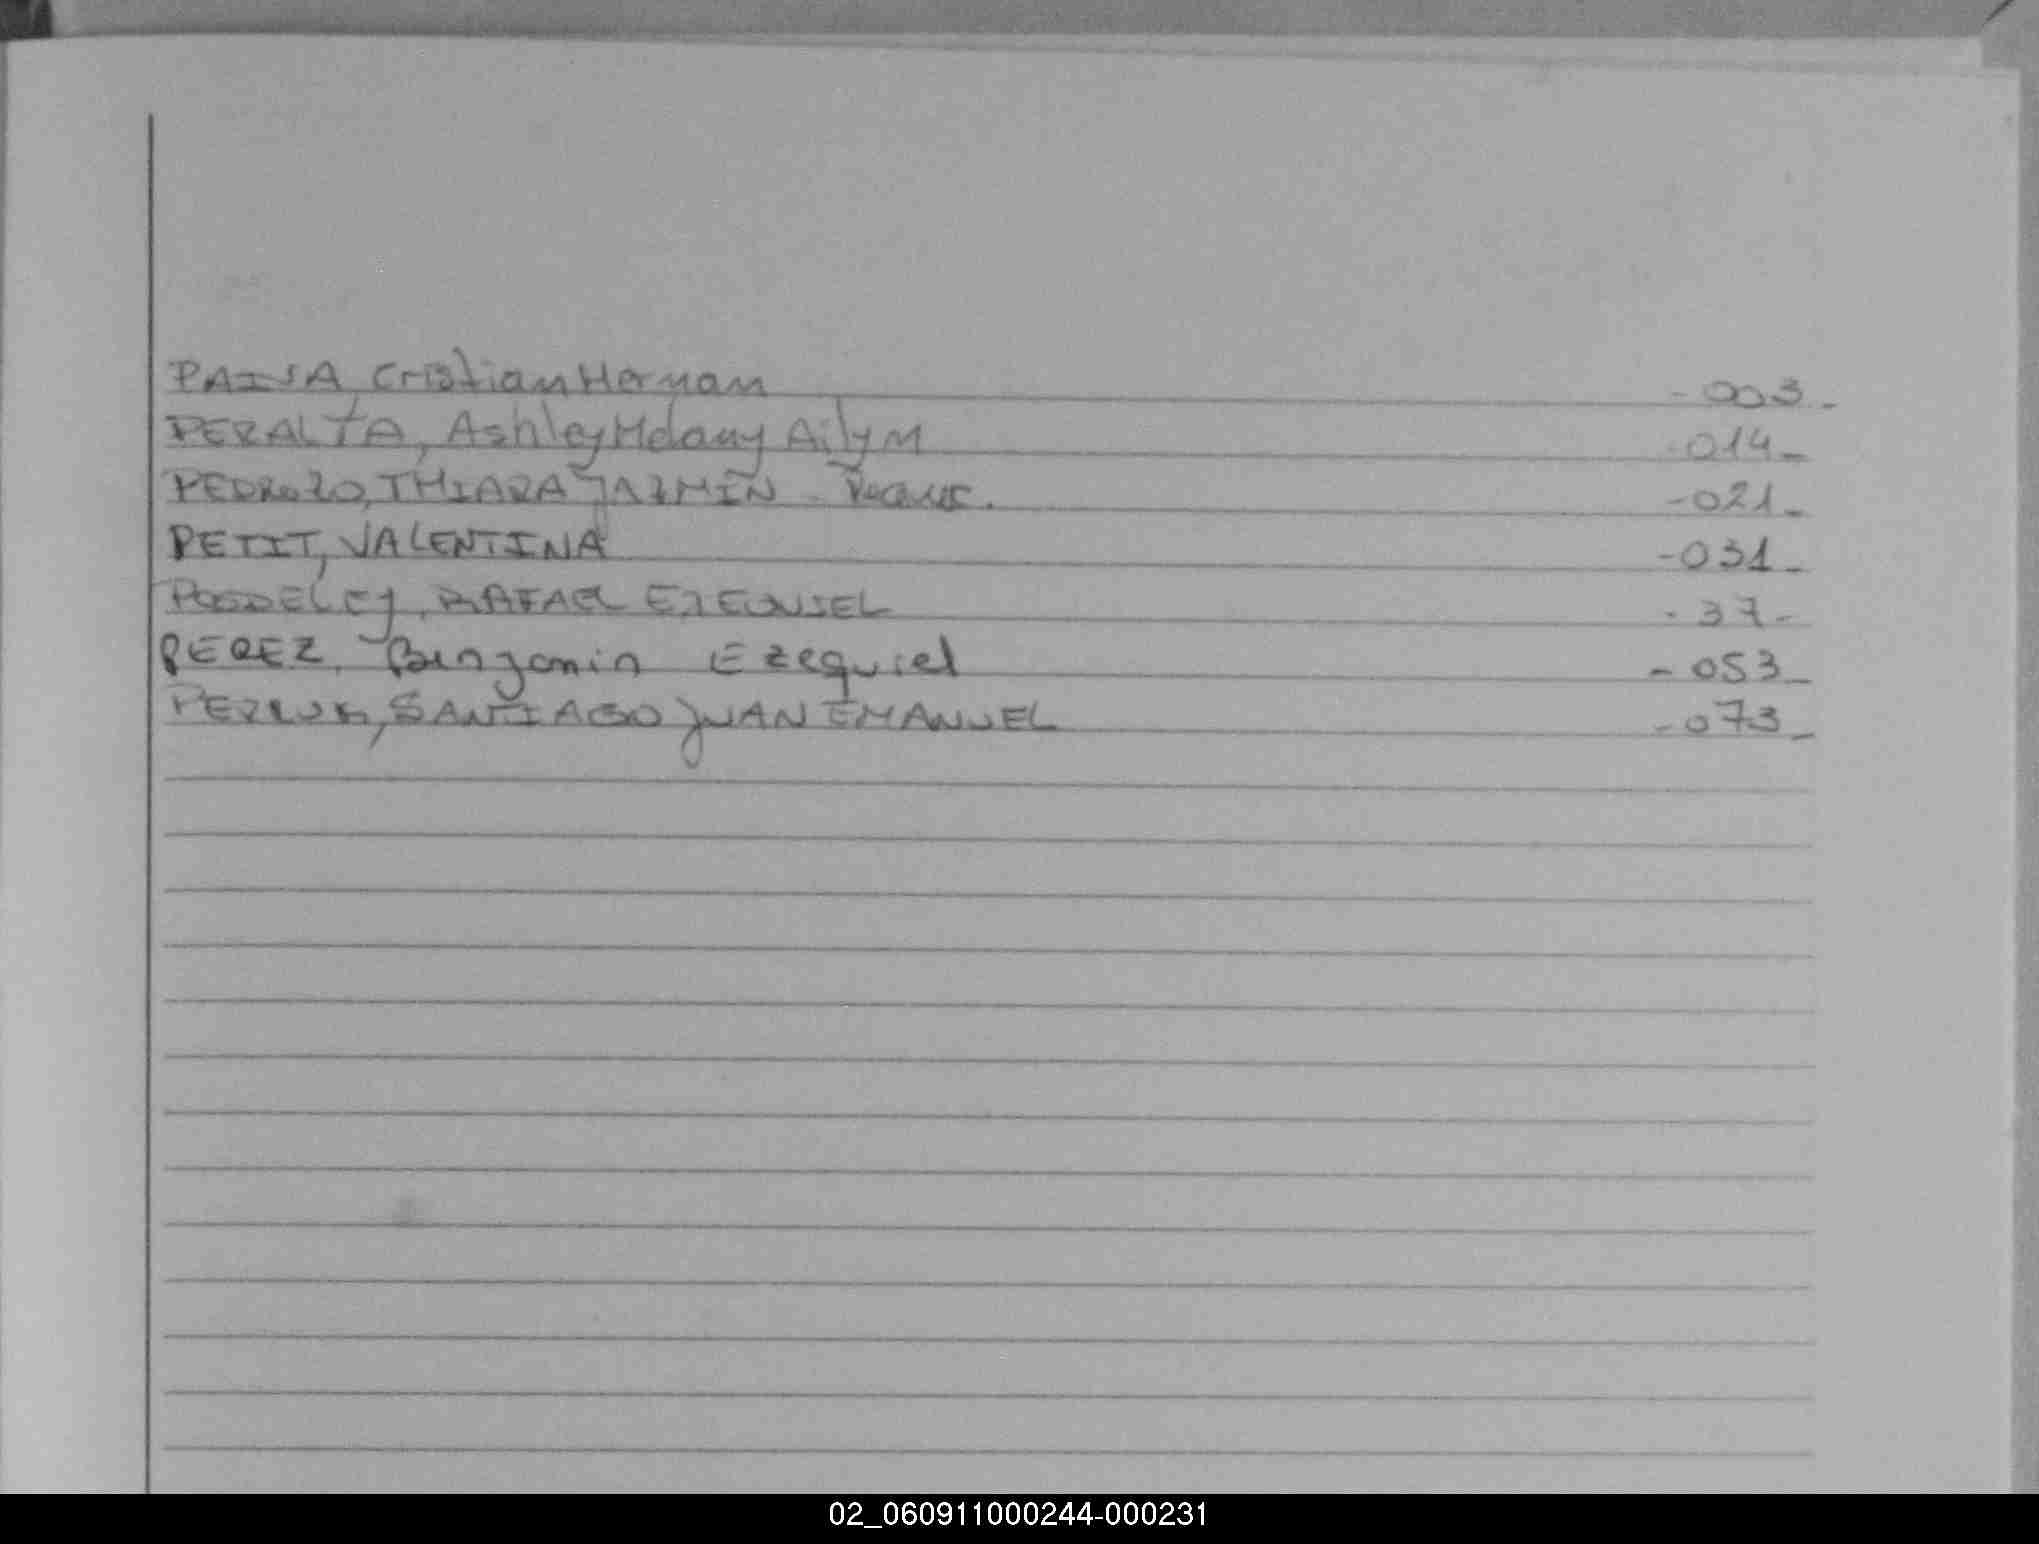 PAIVA, Cristian Hernan - 003 -
PERALTA, Ashley Melany Ailym - 014 -
PEDROZO, THIARA JAZMÍN - - 021 -
PETIT, VALENTINA - 031 -
POSDELEY, RAFAEL EZEQUIEL - 37 -
PEREZ, Benjamin Ezequiel - 053 -
SANTIAGO JUAN EMANUEL - 073 -
02_060911000244-000231